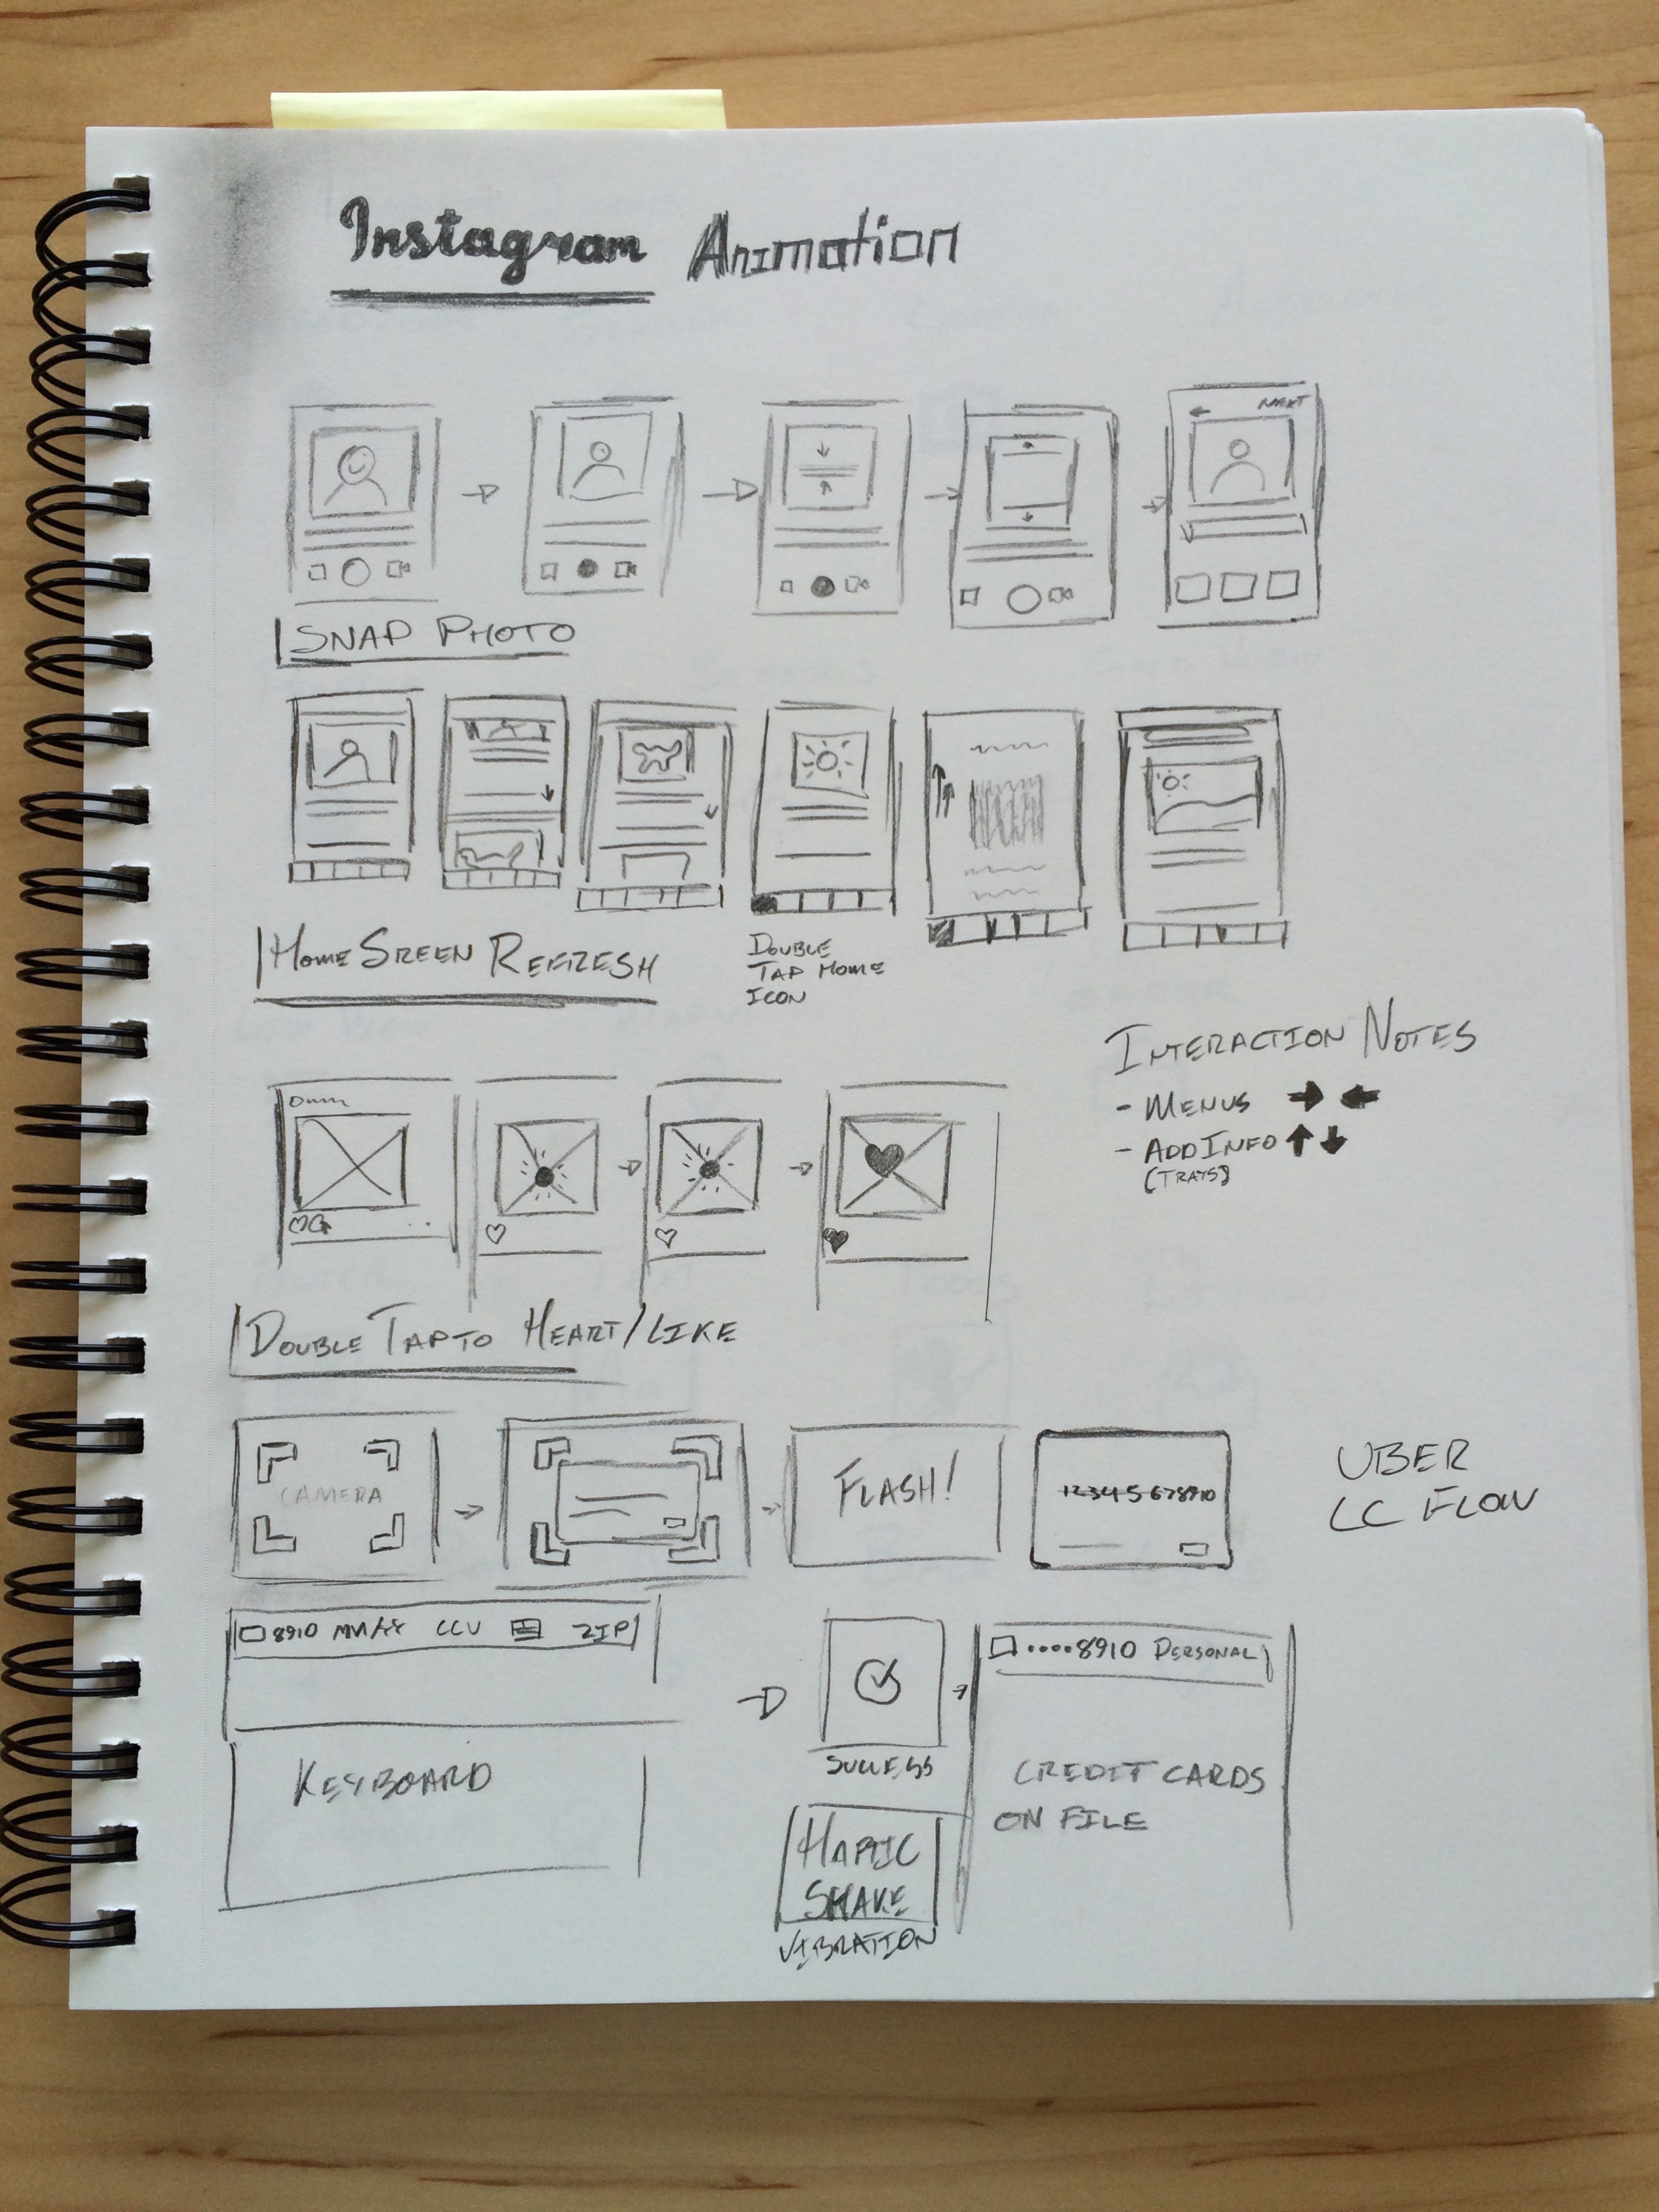 Instagram Animation
NEXT
SNAP PHOTO
HOME SREEN REFRESH
DOUBLE
TAP HOME
ICON
INTERACTION NOTES
- MENUS → ←
- ADD INFO ↑ ↓
(TRAYS)
DOUBLE TAP TO HEART/LIKE
CAMERA
FLASH!
12345678910
UBER
CC FLOW
8910 MM/YY CCV ZIP
KEYBOARD
SUCCESS
HAPTIC
SHAKE
VIBRATION
....8910 PERSONAL
CREDIT CARDS
ON FILE